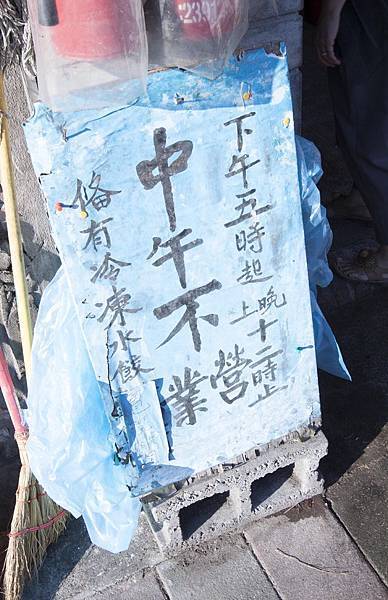 下午五時起
晚上十二時止
中午不營業
備有冷凍水餃